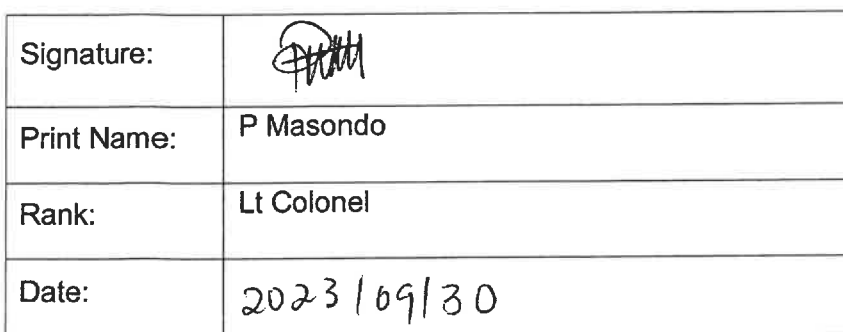 Signature:
Print Name: P Masondo
Rank: Lt Colonel
Date: 2023/09/30